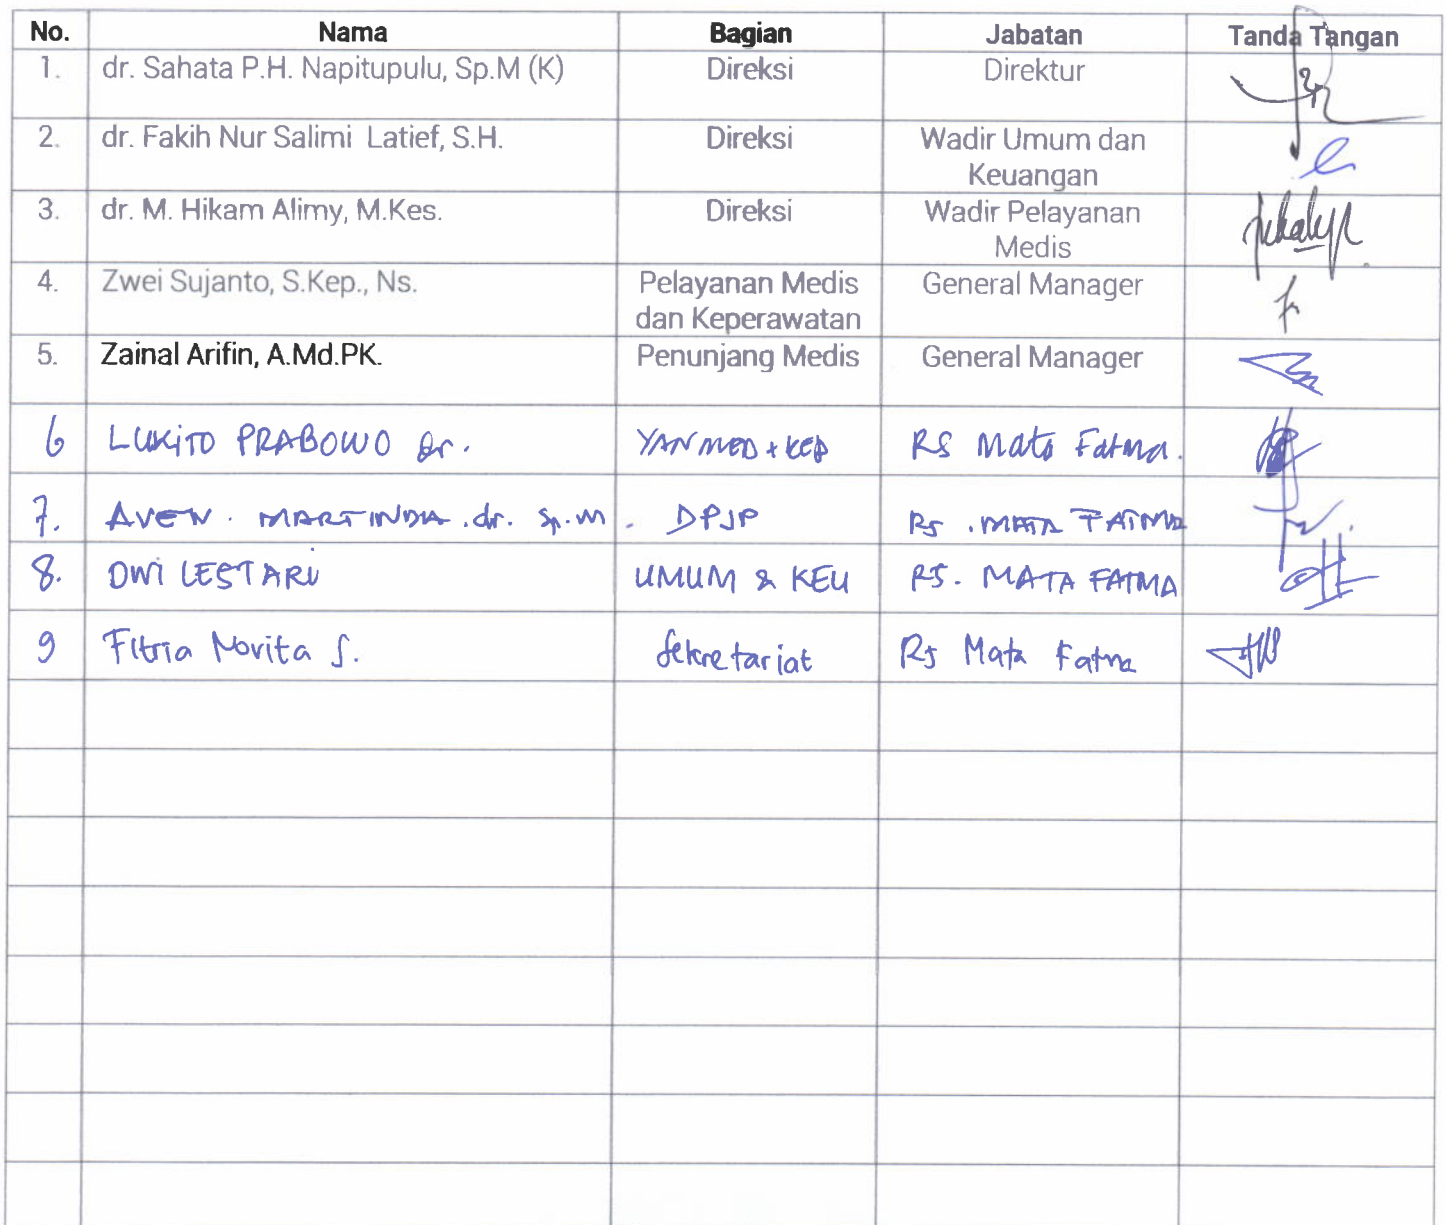 No. Nama Bagian Jabatan Tanda Tangan
1. dr. Sahata P.H. Napitupulu, Sp.M (K) Direksi Direktur
2. dr. Fakih Nur Salimi Latief, S.H. Direksi Wadir Umum dan
Keuangan
3. dr. M. Hikam Alimy, M.Kes. Direksi Wadir Pelayanan
Medis
4. Zwei Sujanto, S.Kep., Ns. Pelayanan Medis General Manager
dan Keperawatan
5. Zainal Arifin, A.Md.PK. Penunjang Medis General Manager
6 LUKITO PRABOWO dr. YANMED + KEP RS Mata Fatma.
7. AVEN. MARTINDA .dr. Sp.M. DPJP RS. MATA FATMA
8. DWI LESTARI UMUM & KEU RS. MATA FATMA
9 Fitria Novita S. Sekretariat RS Mata Fatma